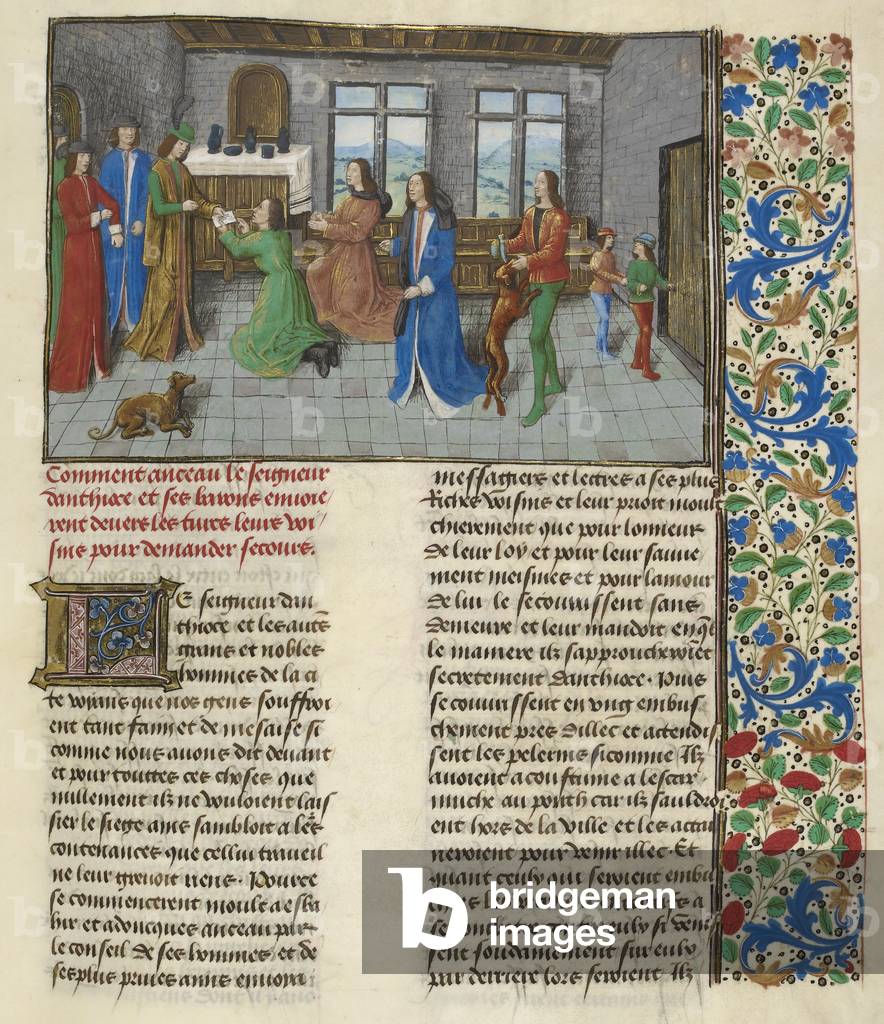 Comment anceau le seigneur
danthioce et ses barons enuoie
rent deuers les turcs leurs voi
sins pour demander secours.
Le seigneur dan
thioce et les autres
grans et nobles
hommes de la ci
te voians que nos gens souffroi
ent tant faim et de mesaise si
comme nous auons dit deuant
et pour touttes ces choses que
nullement ilz ne vouloient lais
sier le siege ains sambloit a leurs
contenances que cellui traueil
ne leur greuoit riens. Pource
se commencerent moult a esba
hir et adoncques anceau par
le conseil de ses hommes et de
ses plus priues amis enuoya
messagiers et lettres a ses plus
Riches voisins et leur prioit moult
chierement que pour lonneur
de leur loy et pour leur sauue
ment meismes et pour lamour
de lui le secourussent sans
demeure et leur mandoit en quele
le maniere ilz sapprocheroient
secretement danthioce. Puis
se couurissent en vng embus
chement pres dillec et attendis
sent les pelerins si comme Ilz
auoient acoustume a lescar
muche au ponth car ilz sauldroi
ent hors de la ville et les actai
neroient pour venir illec. Et
quant ceulx qui seroient embu
sent soudainement sur eulx
par derriere lors seroient Ilz
bridgeman
images